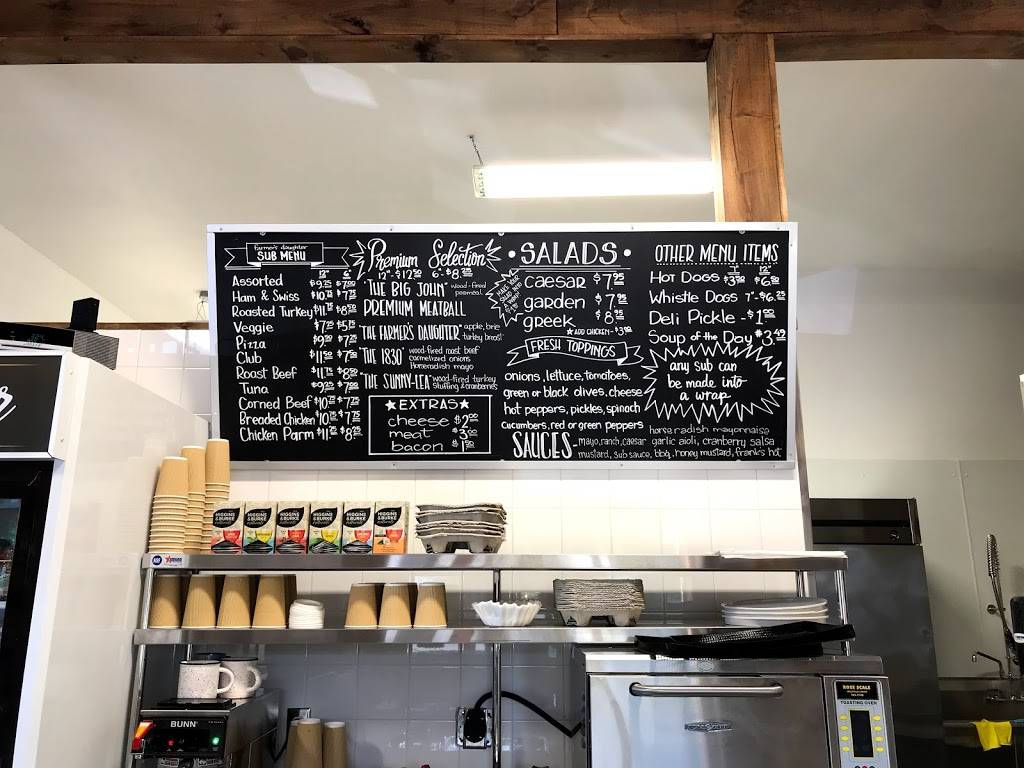 Farmer's daughter
SUB MENU
12" 6"
Assorted $9.75 $7.00
Ham & Swiss $10.75 $7.75
Roasted Turkey $11.75 $8.25
Veggie $7.75 $5.75
Pizza $9.50 $7.25
Club $11.50 $7.50
Roast Beef $11.75 $8.50
Tuna $9.25 $7.00
Corned Beef $10.75 $7.75
Breaded Chicken 10.75 $7.75
Chicken Parm $11.25 $8.25
Premium Selection
12"-$12.50 6"-$8.75
"THE BIG JOHN" wood-fired
peameal
PREMIUM MEATBALL
"THE FARMER'S DAUGHTER" apple, brie
turkey breast
"THE 1830" wood-fired roast beef
carmelized onions
Horseradish mayo
"THE SUNNY-LEA" wood-fired turkey
stuffing & cranberries
★EXTRAS★
cheese $2.00
meat $3.00
bacon $1.50
•SALADS•
MAKE YOUR
caesar $7.95
garden $7.95
greek $8.95
★ADD CHICKEN-$3.00
FRESH TOPPINGS
onions, lettuce, tomatoes,
green or black olives, cheese
hot peppers, pickles, spinach
cucumbers, red or green peppers
SAUCES - mayo, ranch, caesar
horseradish mayonnaise
garlic aioli, cranberry salsa
mustard, sub sauce, bbq, honey mustard, frank's hot
OTHER MENU ITEMS
7" 12"
Hot Dogs $3.50 $6.50
Whistle Dogs 7"-$6.25
Deli Pickle - $1.00
Soup of the Day $3.49
any sub can
be made into
a wrap
HIGGINS
&BURKE
HIGGINS
&BURKE
HIGGINS
&BURKE
HIGGINS
&BURKE
HIGGINS
&BURKE
HIGGINS
&BURKE
NSF
BUNN
TOASTING OVEN